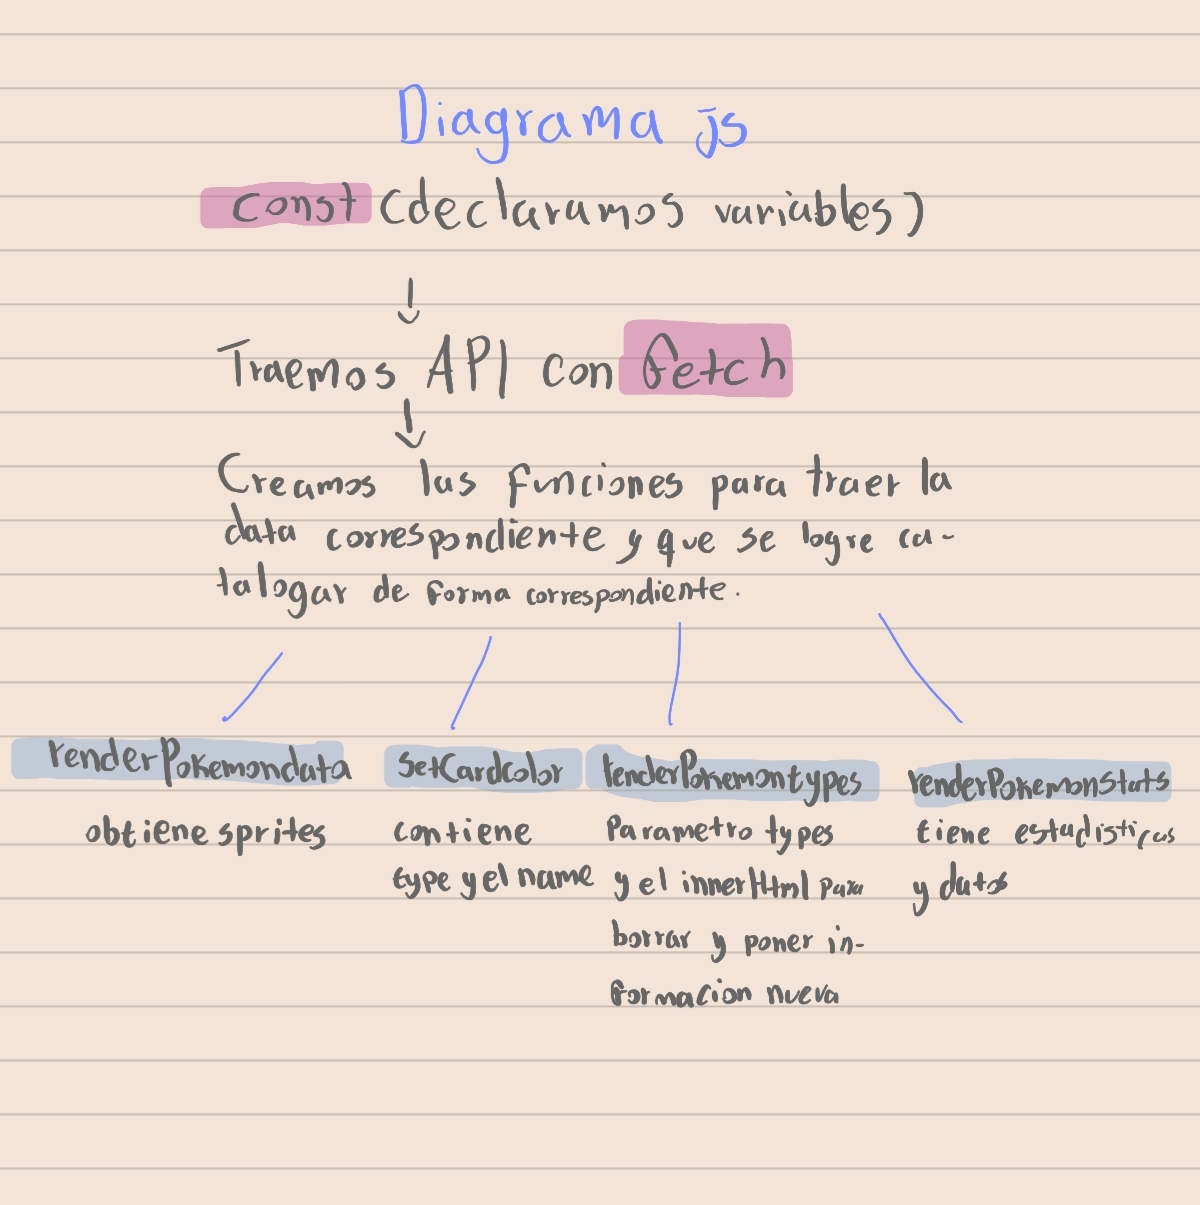 Diagrama js
const (declaramos variables)
Traemos API con fetch
Creamos las funciones para traer la
data correspondiente y que se logre ca-
talogar de forma correspondiente.
renderPokemondata
obtiene sprites
setCardColor
contiene
type y el name
renderPokemontypes
Parametro types
y el innerHtml para
borrar y poner in-
formacion nueva
renderPokemonStats
tiene estadisticas
y datos